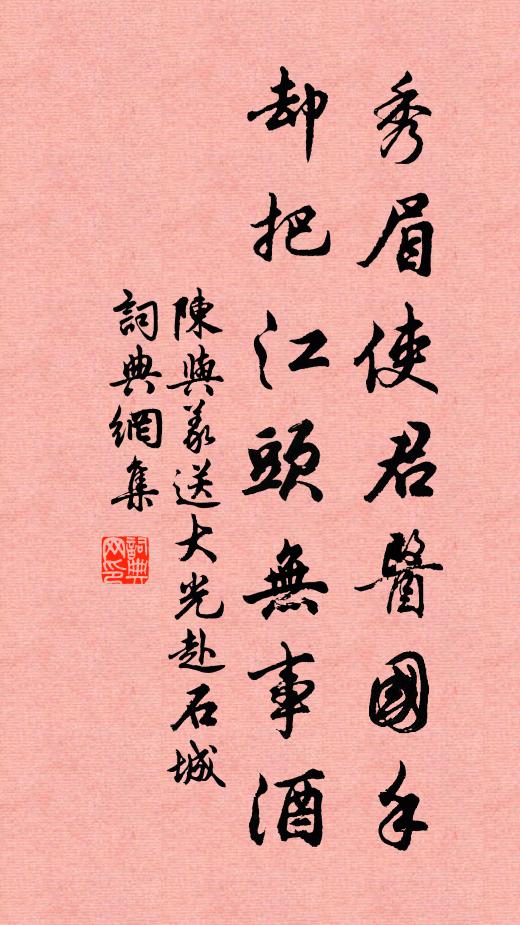 秀眉使君醫國手
却把江頭無事酒
陳與義送大光赴石城
詞典網集
詞典
网印